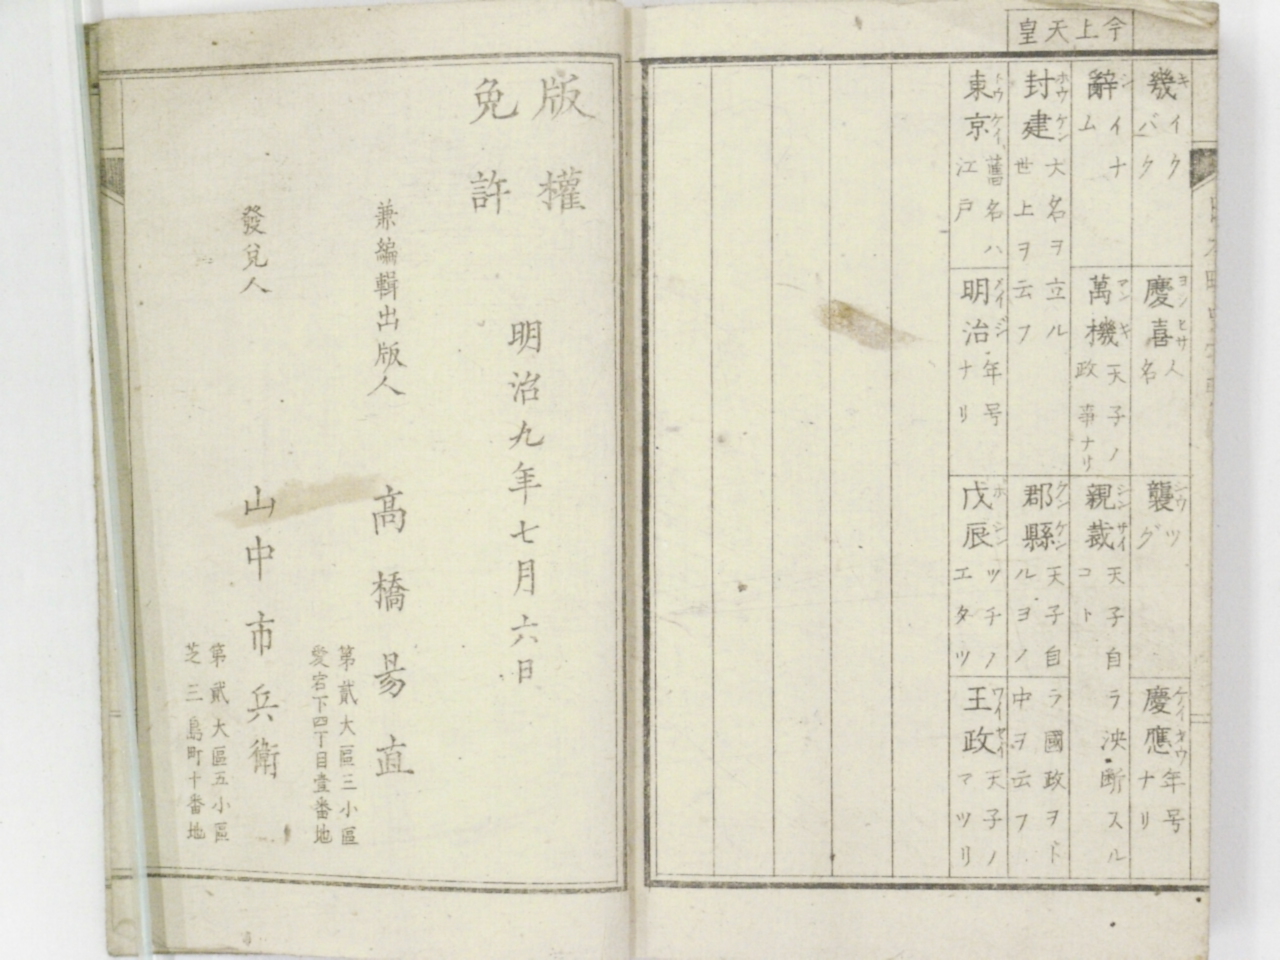 今上天皇
幾キ イクバク
慶喜ヨシヒサ 人名
襲シウ ツグ
慶應ケイオウ 年号ナリ
辭シ イナム
萬機マンキ 天子ノ政事ナリ
親裁シンサイ 天子自ラ決断スルコト
封建ホウケン 大名ヲ立ル世上ヲ云フ
郡縣グンケン 天子自ラ國政ヲトルヨノ中ヲ云フ
東京トウケイ 舊名ハ江戸
明治メイジ 年号ナリ
戊辰ボシン ツチノエタツ
王政ワイセイ 天子ノマツリ
版權
免許
明治九年七月六日
兼編輯出版人
高橋易直
第貳大區三小區
愛宕下四丁目壹番地
發兌人
山中市兵衛
第貳大區五小區
芝三島町十番地